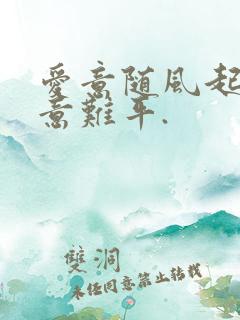 愛意随風起
意難平.
雙洞
未经同意禁止转载